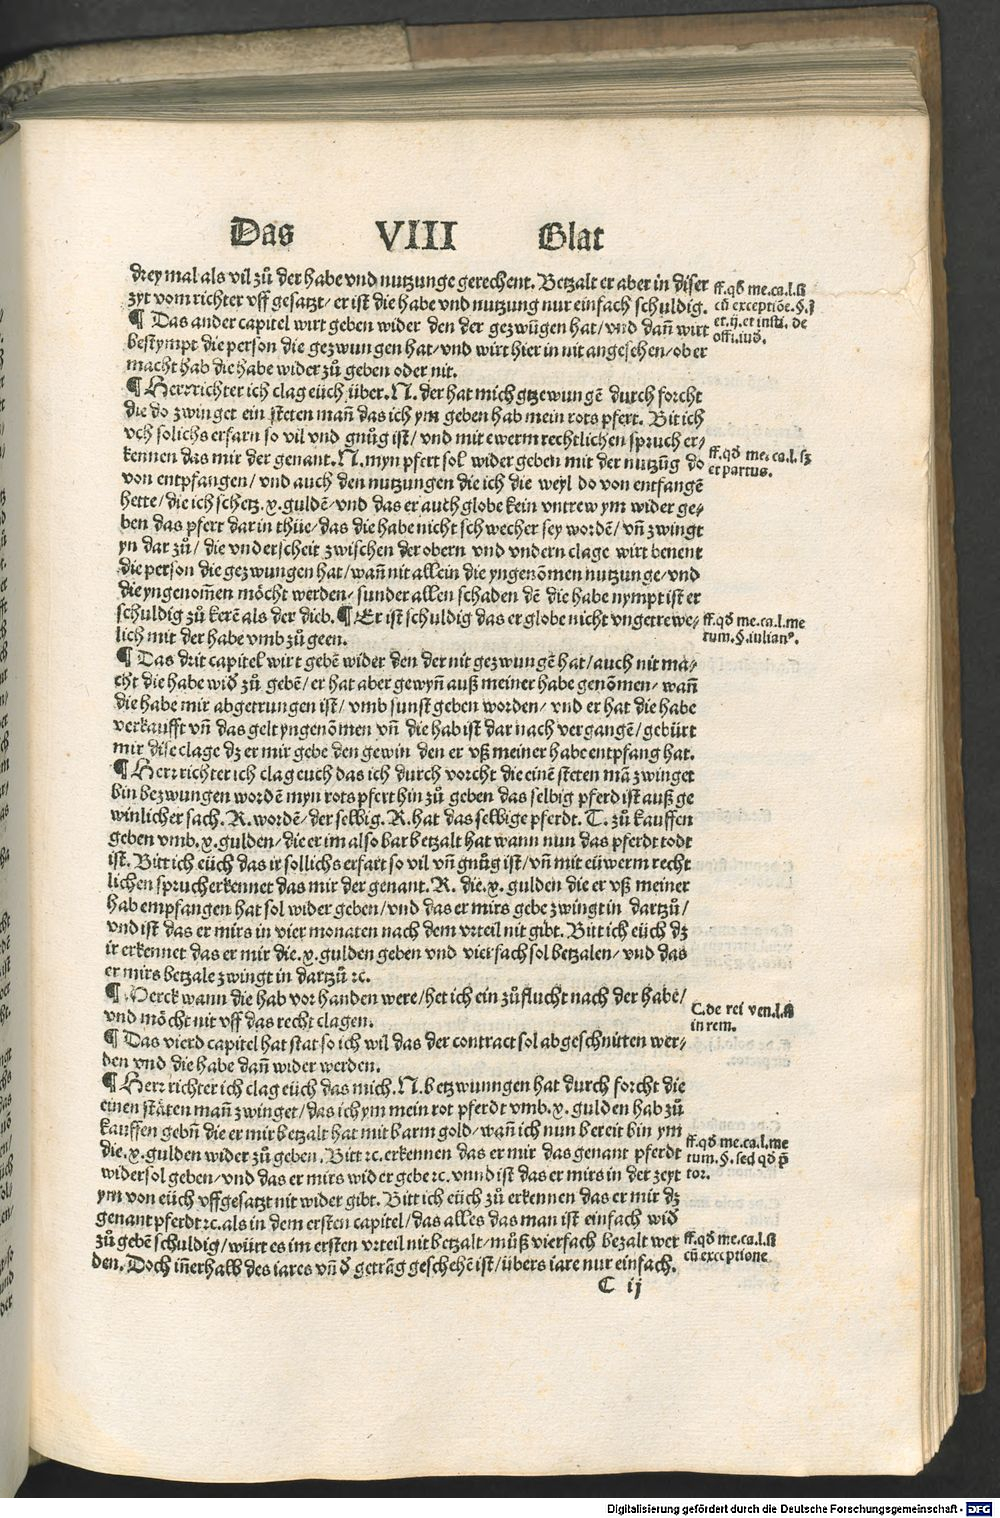 Das VIII Blat
drey mal als vil zů der habe vnd nutzunge gerechent. Betzalt er aber in diser
zyt vom richter vff gesatzt/ er ist die habe vnd nutzung nur einfach schuldig.
¶ Das ander capitel wirt geben wider den der gezwũgen hat/vnd dañ wirt
bestympt die person die gezwungen hat/vnd wirt hier in nit angesehen/ob er
macht hab die habe wider zů geben oder nit.
¶ Herr richter ich clag eüch über. N. der hat mich gtzewungẽ durch forcht
die do zwinget ein steten mañ das ich ym geben hab mein rots pfert. Bit ich
vch solichs erfarn so vil vnd gnůg ist/ vnd mit ewerm rechtlichen spruch er/
kennen das mir der genant. N. myn pfert sol wider geben mit der nutzũg do
von entpfangen/ vnd auch den nutzungen die ich die weyl do von entfangẽ
hette/ die ich schetz. x. guldẽ/ vnd das er auch globe kein vntrew ym wider ge/
ben das pfert dar in thüe/ das die habe nicht schwecher sey wordẽ/ vñ zwingt
yn dar zů/ die vnderscheit zwischen der obern vnd vndern clage wirt benent
die person die gezwungen hat/wañ nit allein die yngenõmen nutzunge/vnd
die yngenom̃en mõcht werden/ sunder allen schaden dẽ die habe nympt ist er
schuldig zů kerẽ als der dieb. ¶ Er ist schuldig das er globe nicht vngetrewe/
lich mit der habe vmb zů geen.
¶ Das drit capitel wirt gebẽ wider den der nit gezwungẽ hat/auch nit ma/
cht die habe wiđ zů gebẽ/ er hat aber gewyñ auß meiner habe genõmen/ wañ
die habe mir abgetrungen ist/ vmb sunst geben worden/ vnd er hat die habe
verkaufft vñ das gelt yngenõmen vñ die hab ist dar nach vergangẽ/gebürt
mir dise clage dz er mir gebe den gewin den er vß meiner habe entpfang hat.
¶ Herr richter ich clag euch das ich durch vorcht die einẽ steten mã zwinget
bin bezwungen wordẽ myn rots pfert hin zů geben das selbig pferd ist auß ge
winlicher sach. R. wordẽ/ der selbig. R. hat das selbige pferdt. T. zů kauffen
geben vmb. x. gulden/ die er im also bar betzalt hat wann nun das pferdt todt
ist. Bitt ich eüch das ir sollichs erfart so vil vñ gnůg ist/ vñ mit eüwerm recht
lichen spruch erkennet das mir der genant. R. die. x. gulden die er vß meiner
hab empfangen hat sol wider geben/vnd das er mirs gebe zwingt in dartzů/
vnd ist das er mirs in vier monaten nach dem vrteil nit gibt. Bitt ich eüch dz
ir erkennet das er mir die. x. gulden geben vnd vierfach sol betzalen/ vnd das
er mirs betzale zwingt in dartzů ꝛc.
¶ Merck wann die hab vorhanden were/het ich ein zůflucht nach der habe/
vnd mõcht nit vff das recht clagen.
¶ Das vierd capitel hat stat so ich wil das der contract sol abgeschnitten wer/
den vnd die habe dañ wider werden.
¶ Herr richter ich clag eüch das mich. N. betzwunngen hat durch forcht die
einen stäten mañ zwinget/das ich ym mein rot pferdt vmb. x. gulden hab zů
kauffen gebñ die er mir betzalt hat mit barm gold/wañ ich nun bereit bin ym
die. x. gulden wider zů geben. Bitt ꝛc. erkennen das er mir das genant pferdt
wider sol geben/vnd das er mirs wider gebe ꝛc. vnnd ist das er mirs in der zeyt
ym von eüch vffgesatzt nit wider gibt. Bitt ich eüch zů erkennen das er mir dz
genant pferdt ꝛc. als in dem ersten capitel/das alles das man ist einfach wiđ
zů gebẽ schuldig/ würt es im ersten vrteil nit betzalt/ můß vierfach bezalt wer
den. Doch iñerhalb des iares vñ đ getrãg geschehẽ ist/übers iare nur einfach.
C ij
ff. qđ me. ca. l. si
cũ exceptiõe. §. j
et. ij. et insti. de
offi. iuđ.
ff. qđ me. ca. l. sz
et partus.
ff. qđ me. ca. l. me
tum. §. iulianꝰ.
C. de rei ven. l. si
in rem.
ff. qđ me. ca. l. me
tum. §. sed qđ p̃
tor.
ff. qđ me. ca. l. si
cũ exceptione
Digitalisierung gefördert durch die Deutsche Forschungsgemeinschaft - DFG